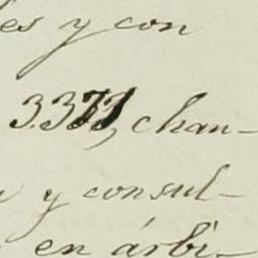 es y con
3.371, chan-
y consul-
en árbi-